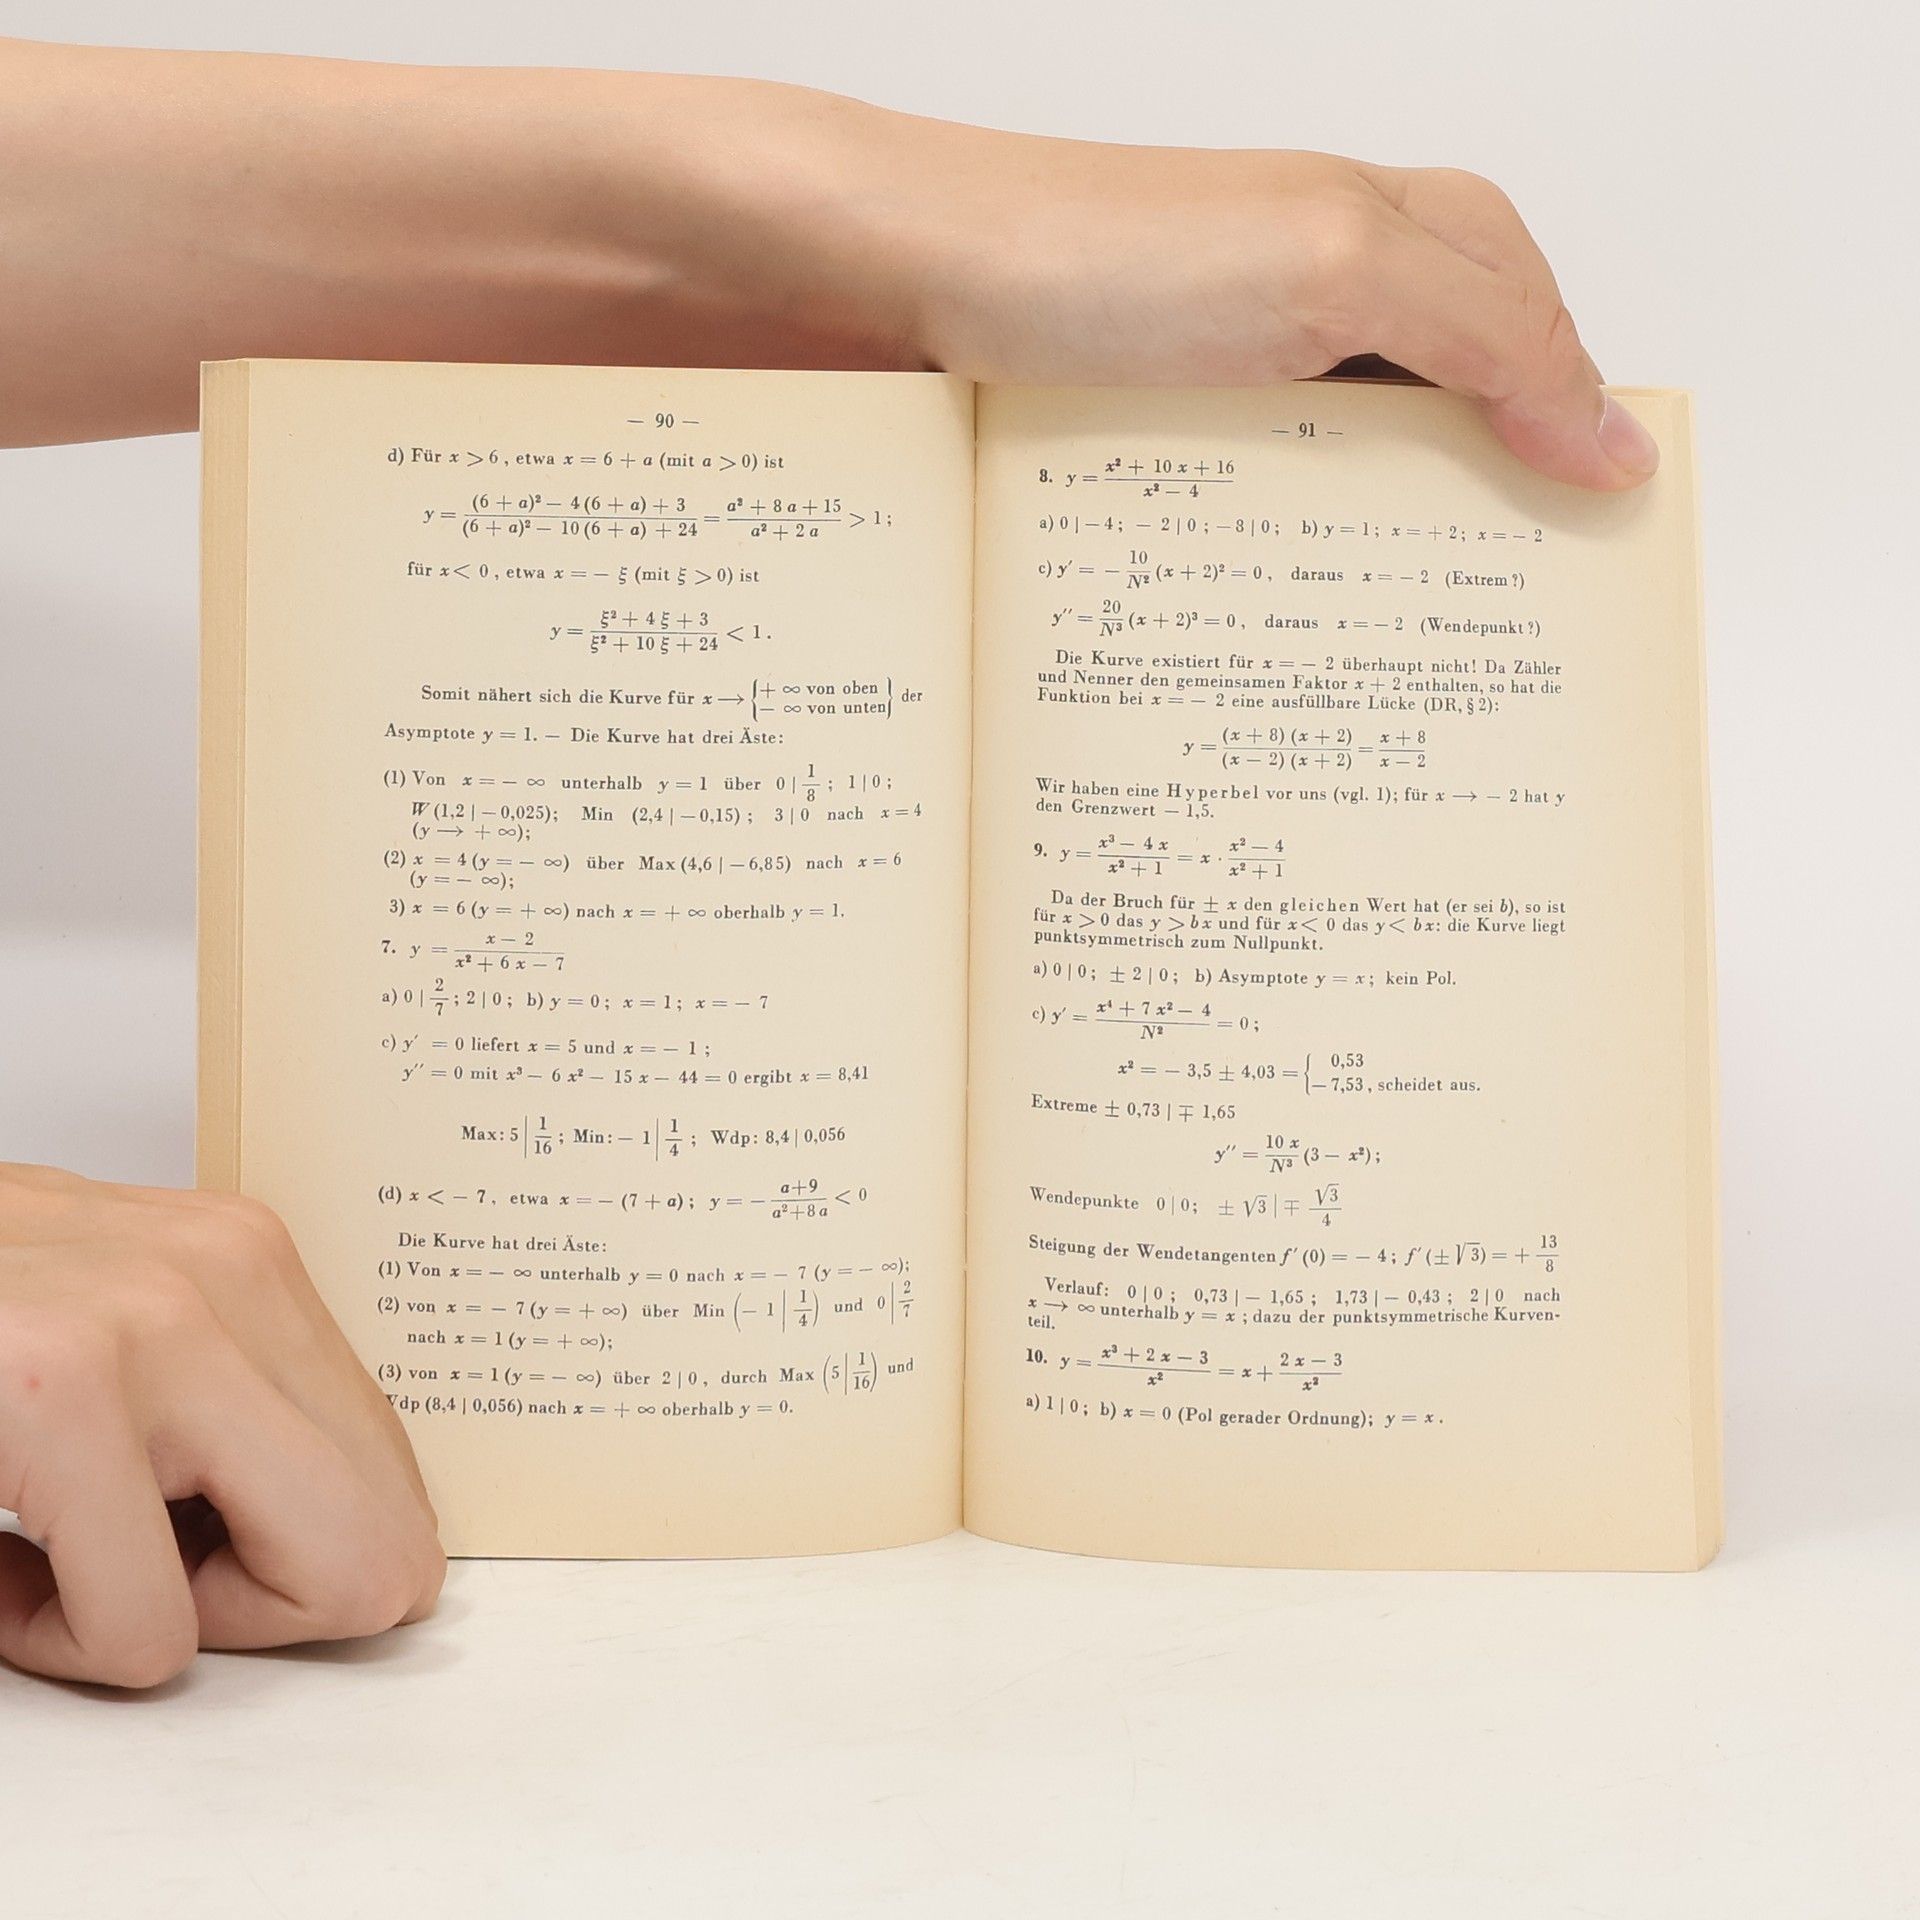 — 90 —
d) Für x > 6, etwa x = 6 + a (mit a > 0) ist
y = ((6 + a)² — 4 (6 + a) + 3) / ((6 + a)² — 10 (6 + a) + 24) = (a² + 8 a + 15) / (a² + 2 a) > 1;
für x < 0, etwa x = — ξ (mit ξ > 0) ist
y = (ξ² + 4 ξ + 3) / (ξ² + 10 ξ + 24) < 1.
Somit nähert sich die Kurve für x → {+ ∞ von oben / — ∞ von unten} der
Asymptote y = 1. — Die Kurve hat drei Äste:
(1) Von x = — ∞ unterhalb y = 1 über 0 | 1/8; 1 | 0;
W (1,2 | — 0,025); Min (2,4 | — 0,15); 3 | 0 nach x = 4
(y → + ∞);
(2) x = 4 (y = — ∞) über Max (4,6 | — 6,85) nach x = 6
(y = — ∞);
3) x = 6 (y = + ∞) nach x = + ∞ oberhalb y = 1.
7. y = (x — 2) / (x² + 6 x — 7)
a) 0 | 2/7; 2 | 0; b) y = 0; x = 1; x = — 7
c) y′ = 0 liefert x = 5 und x = — 1;
y″ = 0 mit x³ — 6 x² — 15 x — 44 = 0 ergibt x = 8,41
Max: 5 | 1/16; Min: — 1 | 1/4; Wdp: 8,4 | 0,056
(d) x < — 7, etwa x = — (7 + a); y = — (a+9) / (a²+8a) < 0
Die Kurve hat drei Äste:
(1) Von x = — ∞ unterhalb y = 0 nach x = — 7 (y = — ∞);
(2) von x = — 7 (y = + ∞) über Min (— 1 | 1/4) und 0 | 2/7
nach x = 1 (y = + ∞);
(3) von x = 1 (y = — ∞) über 2 | 0, durch Max (5 | 1/16) und
Wdp (8,4 | 0,056) nach x = + ∞ oberhalb y = 0.
— 91 —
8. y = (x² + 10 x + 16) / (x² — 4)
a) 0 | — 4; — 2 | 0; — 8 | 0; b) y = 1; x = + 2; x = — 2
c) y′ = — 10/N² (x + 2)² = 0, daraus x = — 2 (Extrem?)
y″ = 20/N³ (x + 2)³ = 0, daraus x = — 2 (Wendepunkt?)
Die Kurve existiert für x = — 2 überhaupt nicht! Da Zähler
und Nenner den gemeinsamen Faktor x + 2 enthalten, so hat die
Funktion bei x = — 2 eine ausfüllbare Lücke (DR, § 2):
y = ((x + 8) (x + 2)) / ((x — 2) (x + 2)) = (x + 8) / (x — 2)
Wir haben eine Hyperbel vor uns (vgl. 1); für x → — 2 hat y
den Grenzwert — 1,5.
9. y = (x³ — 4 x) / (x² + 1) = x · (x² — 4) / (x² + 1)
Da der Bruch für ± x den gleichen Wert hat (er sei b), so ist
für x > 0 das y > b x und für x < 0 das y < b x: die Kurve liegt
punktsymmetrisch zum Nullpunkt.
a) 0 | 0; ± 2 | 0; b) Asymptote y = x; kein Pol.
c) y′ = (x⁴ + 7 x² — 4) / N² = 0;
x² = — 3,5 ± 4,03 = { 0,53
— 7,53, scheidet aus.
Extreme ± 0,73 | ∓ 1,65
y″ = 10 x/N³ (3 — x²);
Wendepunkte 0 | 0; ± √3 | ∓ √3/4
Steigung der Wendetangenten f′ (0) = — 4; f′ (± √3) = + 13/8
Verlauf: 0 | 0; 0,73 | — 1,65; 1,73 | — 0,43; 2 | 0 nach
x → ∞ unterhalb y = x; dazu der punktsymmetrische Kurven-
teil.
10. y = (x³ + 2 x — 3) / x² = x + (2 x — 3) / x²
a) 1 | 0; b) x = 0 (Pol gerader Ordnung); y = x.